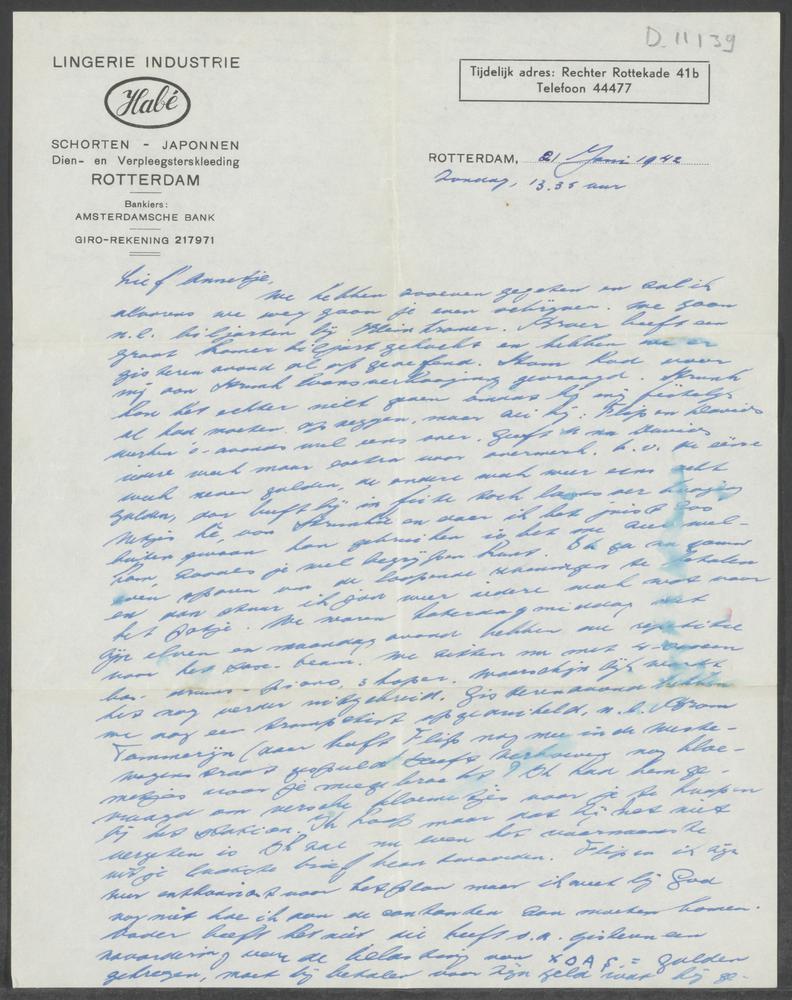 D 11139
LINGERIE INDUSTRIE
Habé
SCHORTEN - JAPONNEN
Dien- en Verpleegsterskleeding
ROTTERDAM
Bankiers:
AMSTERDAMSCHE BANK
GIRO-REKENING 217971
Tijdelijk adres: Rechter Rottekade 41b
Telefoon 44477
ROTTERDAM, 21 Juni 1942
Zondag, 13.35 uur
Lief Annetje,
We hebben zooeven gegeten en zal ik
alvorens we weg gaan je even schrijven. We gaan
n.l. biljarten bij
groot kamerbiljart gekocht en hebben we er
gisteren avond al op geoefend. Ram had voor
mij aan Strunk loonsverhooging gevraagd. Strunk
kon het echter niet geven omdat hij mij feitelijk
al had moeten op zeggen, maar zei hij, Flip en
werken s-avonds wel eens over, geeft
iedere week maar extra voor overwerk, b.v. de eene
week negen gulden, de andere week weer eens acht
gulden, dan heeft hij in feite toch
Netjes hè, van Strunk en daar ik het juist zoo
buiten gewoon kan gebruiken is het me zeer wel-
kom, zooals je wel begrijpen kunt. Ik ga nu
even sparen om de loopende rekeningen te betalen
en dan stuur ik jou weer iedere week wat voor
het potje. We waren Zaterdagmiddag met
zijn elven en maandag avond hebben we repetitie
voor het We zitten nu met 4
bas, drums, piano, 3 koper. Waarschijnlijk wordt
het nog verder uitgebreid. Gisterenavond hebben
we nog een trompetist opgeduikeld, n.l. Bram
(daar heeft Flip nog mee in de
straat gespeeld. Heeft Verhoeven nog bloe-
metjes voor je meegebracht? Ik had hem ge-
vraagd om versche bloemetjes voor je te koopen
bij het station. Ik hoop maar dat hij het niet
vergeten is. Ik zal nu even het voornaamste
uit je laatste brief beantwoorden. Flip en ik zijn
zeer enthousiast voor het plan maar ik weet bij God
nog niet hoe ik aan de contanten zou moeten komen.
Vader heeft het niet, die heeft o.a. gisteren een
navordering van de belasting van gulden
gekregen, moet hij betalen voor zijn geld wat hij ge-